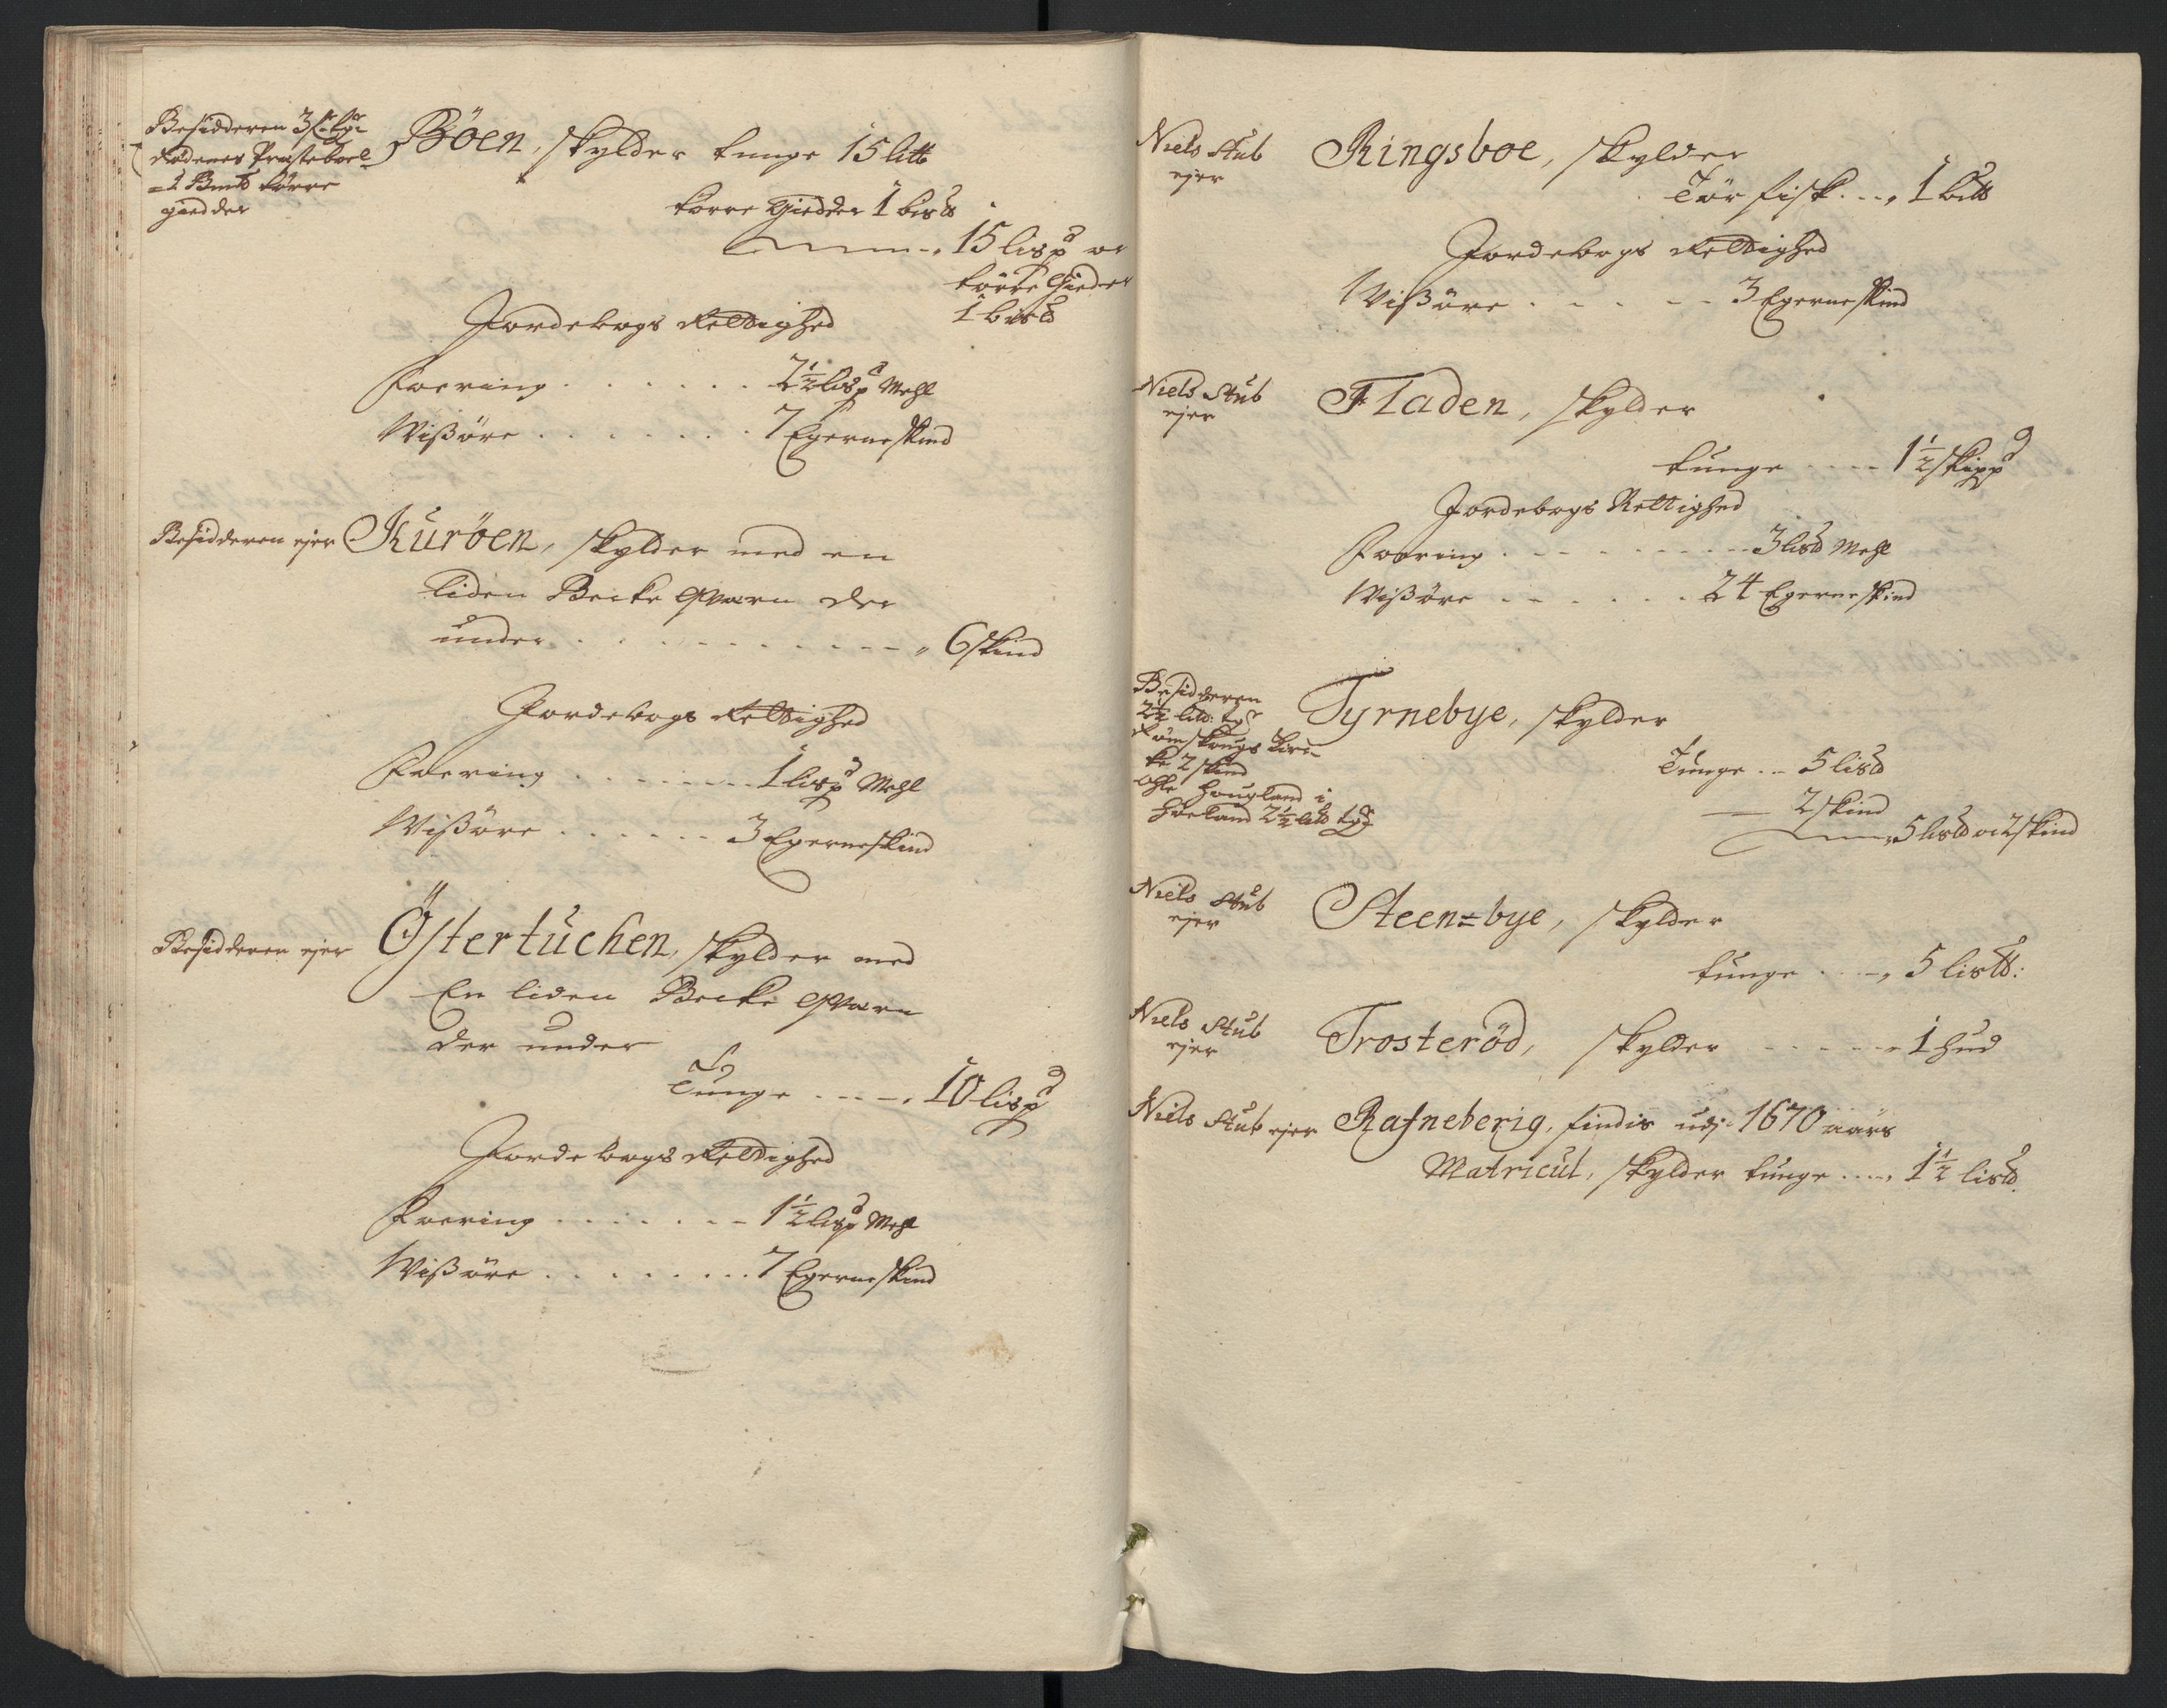 Besidderen 3
Rødenes Præsteboel
1 Bmd tørre
giedder
Böen, skylder tunge 15 litb
tørre Giedder 1 bisd
15 lispd oc
tørre Gieder
1 bisd
Jordebogs Rettighed
Foering . . . . . . . 2½ lispd Mehl
Wißøre . . . . . . . 7 Egerneskind
Besidderen ejer Kuröen, skylder med en
liden Becke Qvarn der
under . . . . . . . . . 6 skind
Jordebogs Rettighed
Foering . . . . . . . 1 lispd Mehl
Wißøre . . . . . . . 3 Egerneskind
Besidderen ejer Östertuchen, skylder med
En liden Becke Qvarn
der under
Tunge . . . . 10 lispd
Jordebogs Rettighed
Foering . . . . . . . 1½ lispd Mehl
Wißøre . . . . . . . 7 Egerneskind
Niels Stub
ejer
Ringsboe, skylder
Tör fisk . . . 1 bitb
Jordebogs Rettighed
Wißøre . . . . . 3 Egerneskind
Niels Stub
ejer
Fladen, skylder
tunge . . . . 1½ skippd
Jordebogs Rettighed
Foering . . . . . . . . 3 lisd Mehl
Wißøre . . . . . . 24 Egerneskind
Besidderen
2½ litb: tge
Römskougs Kir-
ke 2 skind
Ole Hougland i
Höeland 2½ litb tge
Tyrnebye, skylder
Tunge . . 5 lisd
2 skind
5 lisd oc 2 skind
Niels Stub
ejer
Steen=bye, skylder
tunge . . . . 5 listb:
Niels Stub
ejer
Trosteröd, skylder . . . . . 1 hud
Niels Stub ejer Rafneberig, findis udj 1670 aars
Matricul, skylder tunge . . . . 1½ lisd.